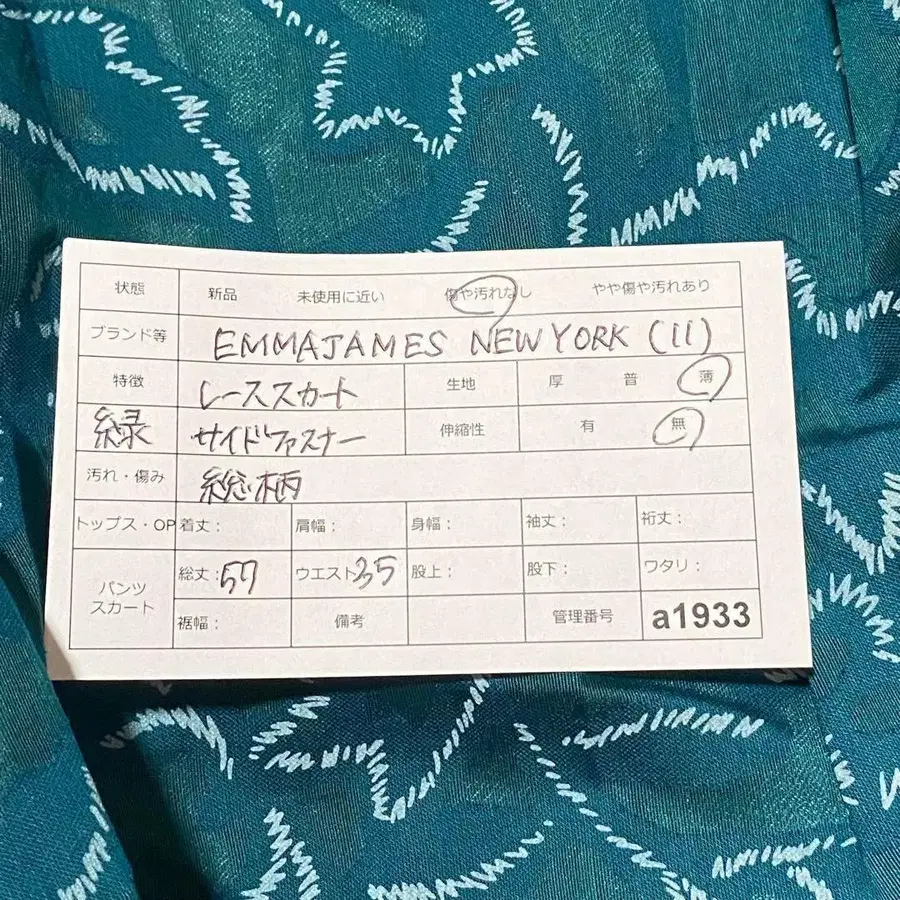 状態 新品 未使用に近い 傷や汚れなし やや傷や汚れあり
ブランド等 EMMAJAMES NEW YORK (11)
特徴 レーススカート 生地 厚 普 薄
緑 サイドファスナー 伸縮性 有 無
汚れ・傷み 総柄
トップス・OP 着丈: 肩幅: 身幅: 袖丈: 裄丈:
パンツ スカート 総丈:57 ウエスト35 股上: 股下: ワタリ:
裾幅: 備考 管理番号 a1933